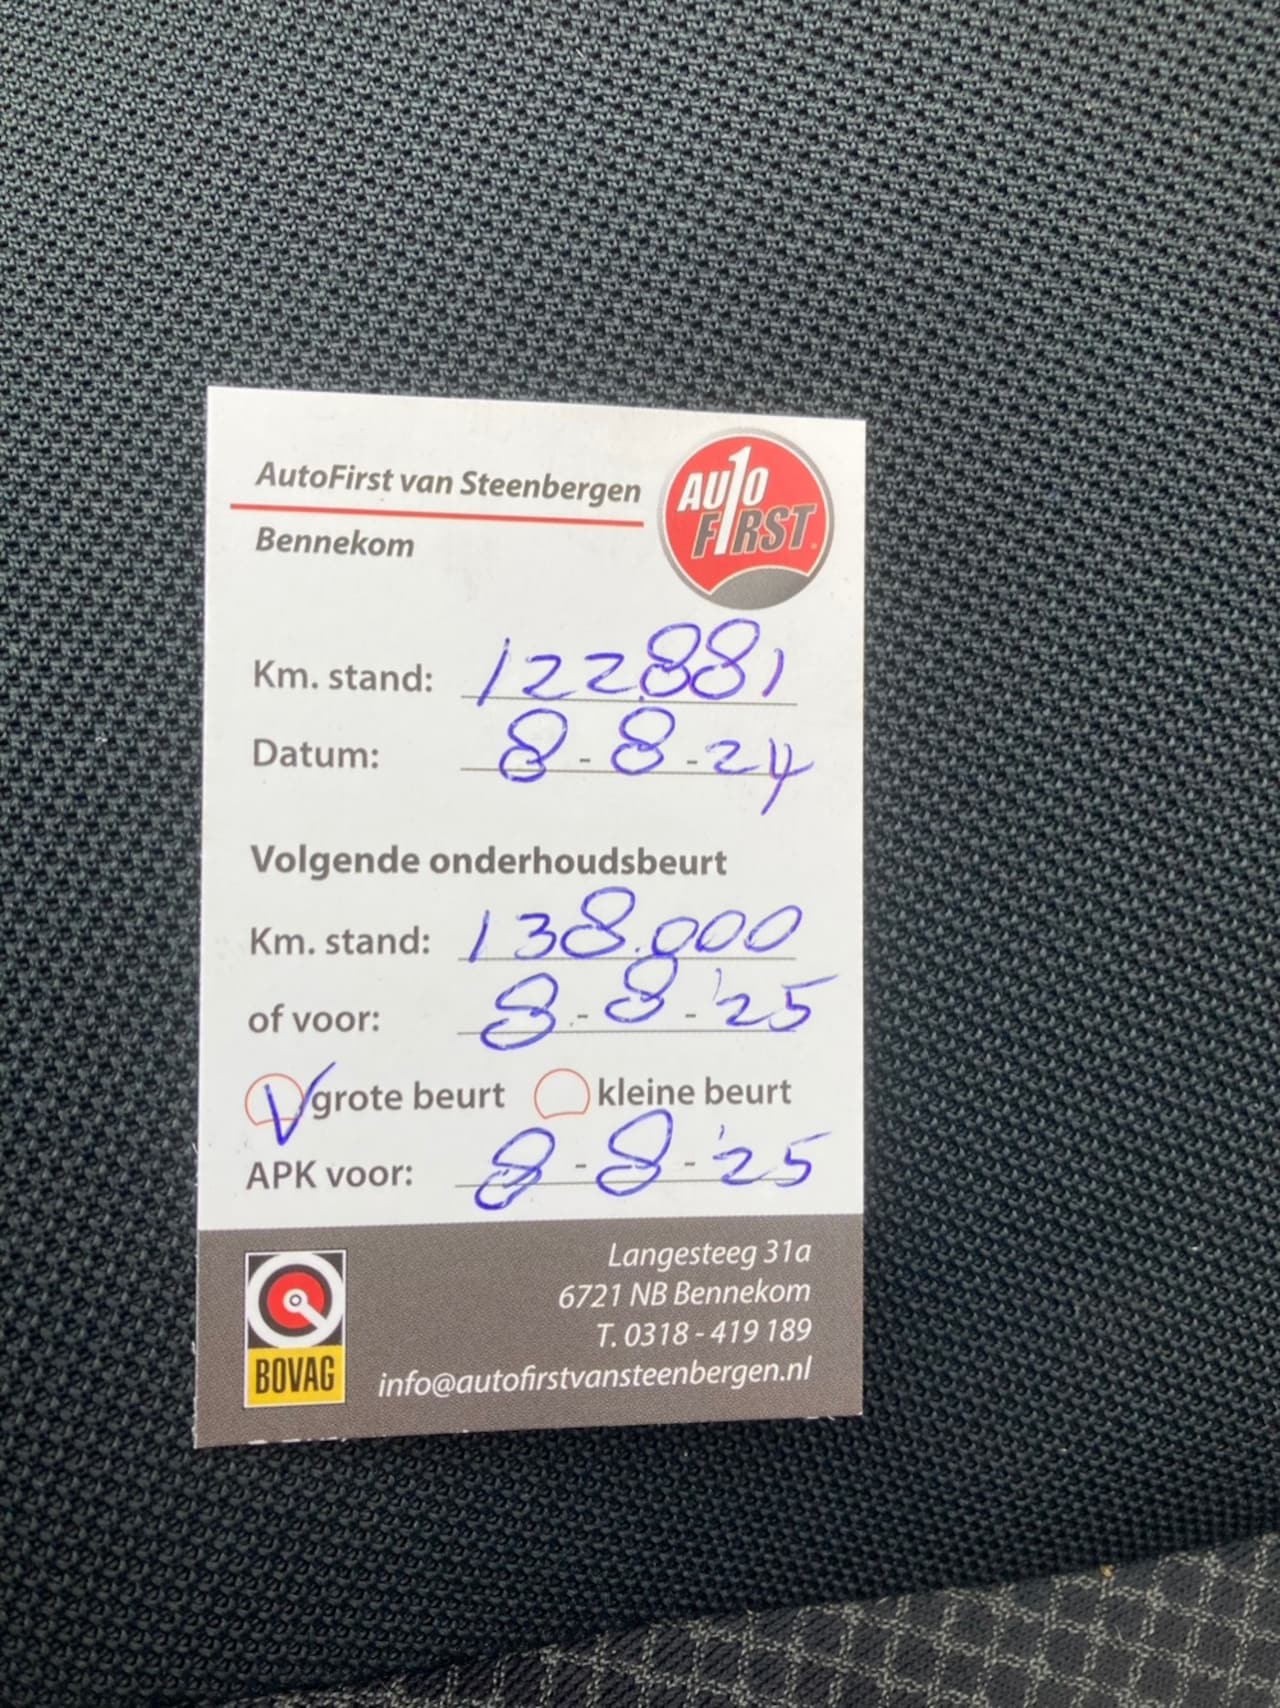 AutoFirst van Steenbergen
Bennekom
AUTO
FIRST
Km. stand: 122.881
Datum: 8-8-24
Volgende onderhoudsbeurt
Km. stand: 138.000
of voor: 8-8-'25
V grote beurt kleine beurt
APK voor: 8-8-'25
BOVAG
Langesteeg 31a
6721 NB Bennekom
T. 0318 - 419 189
info@autofirstvansteenbergen.nl